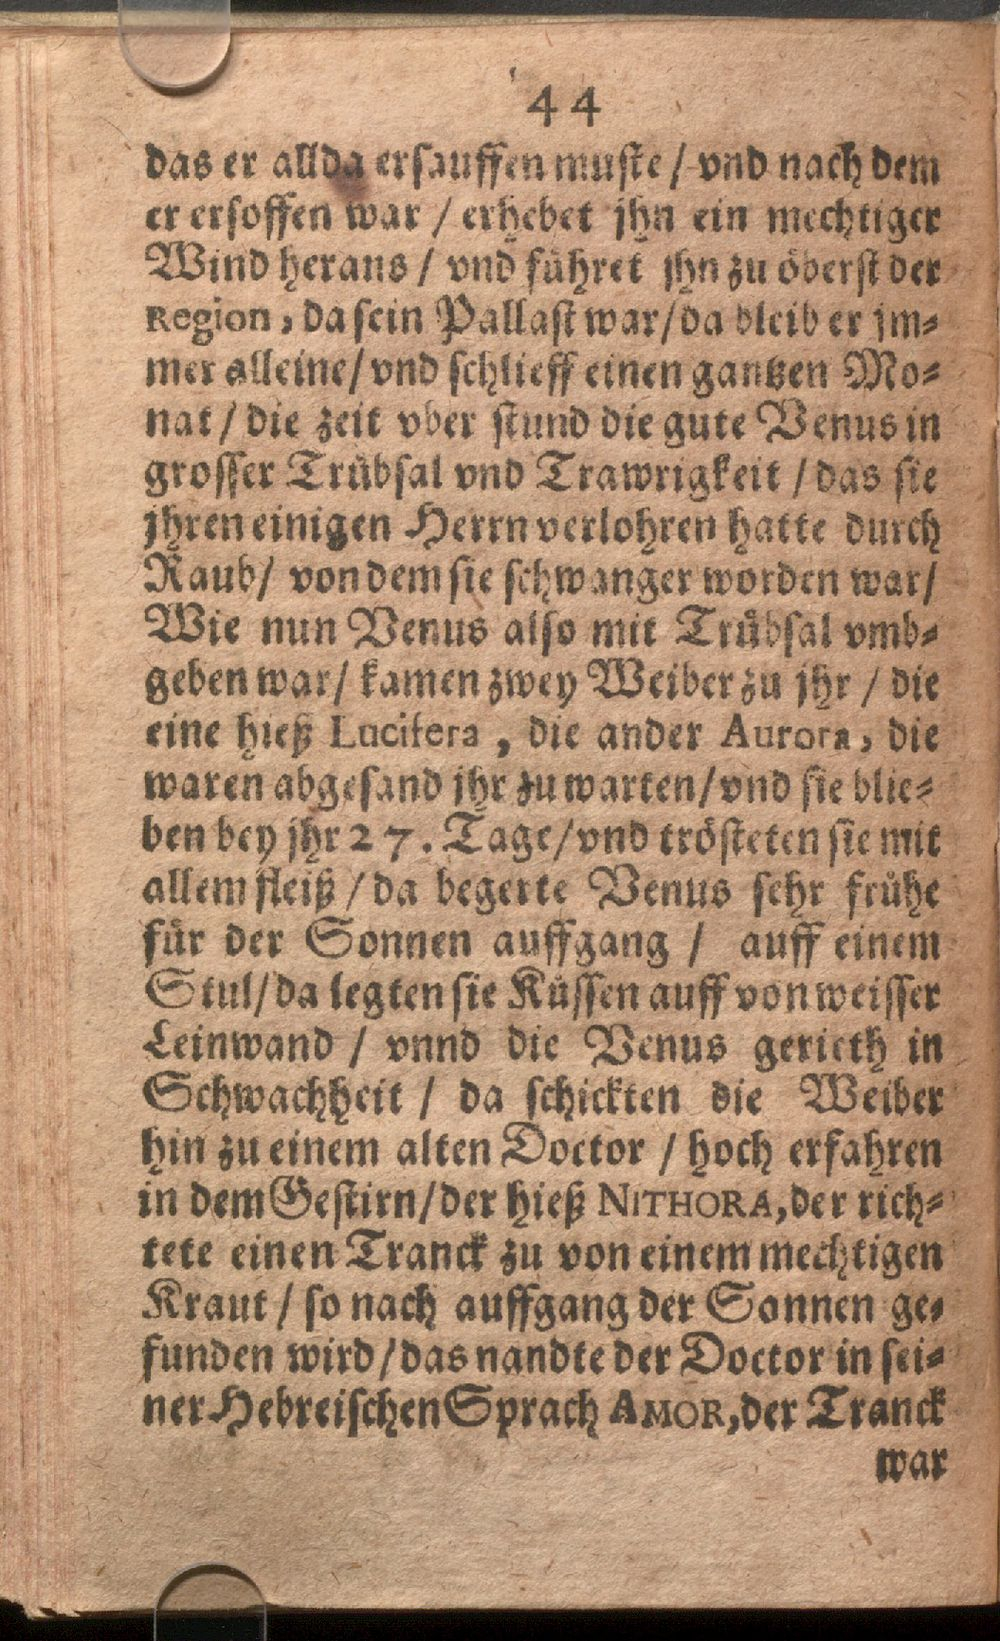 44
das er allda ersauffen muste / vnd nach dem
er ersoffen war / erhebet jhn ein mechtiger
Wind herans / vnd führet jhn zu öberst der
Region, da sein Pallast war / da bleib er jm-
mer alleine / vnd schlieff einen gantzen Mo-
nat / die zeit vber stund die gute Venus in
grosser Trübsal vnd Trawrigkeit / das sie
jhren einigen Herrn verlohren hatte durch
Raub / von dem sie schwanger worden war /
Wie nun Venus also mit Trübsal vmb-
geben war / kamen zwey Weiber zu jhr / die
eine hieß Lucifera, die ander Aurora, die
waren abgesand jhr zu warten / vnd sie blie-
ben bey jhr 27. Tage / vnd trösteten sie mit
allem fleiß / da begerte Venus sehr frühe
für der Sonnen auffgang / auff einem
Stul / da legten sie Küssen auff von weisser
Leinwand / vnnd die Venus gerieth in
Schwachheit / da schickten die Weiber
hin zu einem alten Doctor / hoch erfahren
in dem Gestirn / der hieß NITHORA, der rich-
tete einen Tranck zu von einem mechtigen
Kraut / so nach auffgang der Sonnen ge-
funden wird / das nandte der Doctor in sei-
ner Hebreischen Sprach AMOR, der Tranck
war